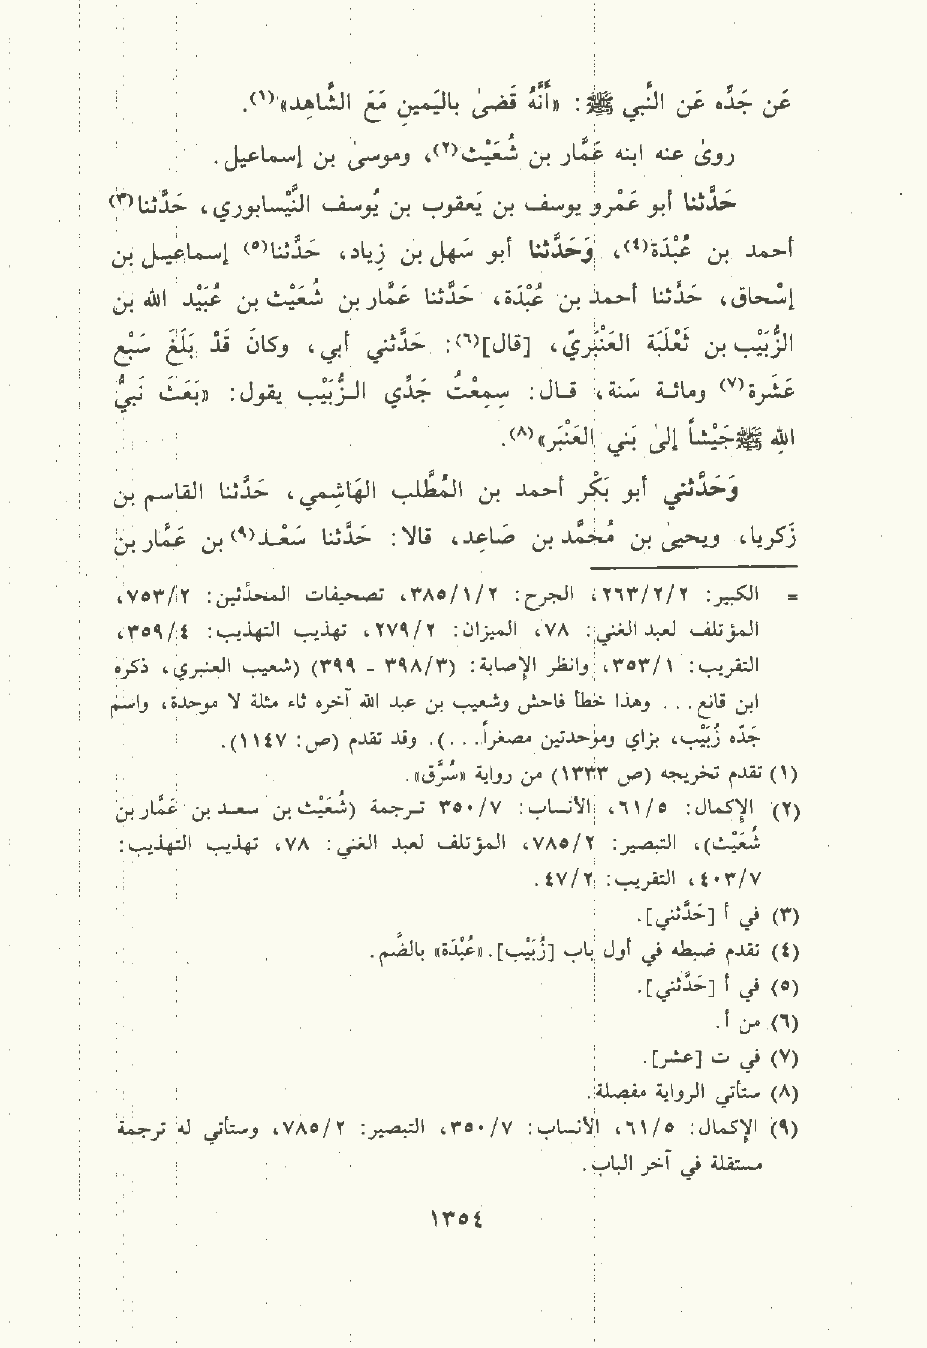 عَن جَدِّه عَن النَّبي ﷺ: «أَنَّهُ قَضىٰ باليَمينِ مَعَ الشَّاهِد»(١).
روىٰ عنه ابنه عَمَّار بن شُعَيْث(٢)، وموسىٰ بن إسماعيل.
حَدَّثنا أبو عَمْرو يوسف بن يَعقوب بن يُوسف النَّيْسابوري، حَدَّثنا(٣)
أحمد بن عُبْدَة(٤)، وَحَدَّثنا أبو سَهل بن زياد، حَدَّثنا(٥) إسماعيل بن
إسْحاق، حَدَّثنا أحمد بن عُبْدَة، حَدَّثنا عَمَّار بن شُعَيْث بن عُبَيْد الله بن
الزُبَيْب بن ثَعْلَبَة العَنْبَريّ، [قال](٦): حَدَّثني أبي، وكانَ قَدْ بَلَغَ سَبْع
عَشْرة(٧) ومائـة سَنة، قـال: سمِعْتُ جَدِّي الـزُّبَيْب يقول: «بَعَثَ نَبيُّ
اللهِ ﷺ جَيْشاً إلىٰ بَني العَنْبَر»(٨).
وَحَدَّثني أبو بَكْر أحمد بن المُطَّلب الهَاشمي، حَدَّثنا القاسم بن
زكريا، ويحيىٰ بن مُحمَّد بن صَاعِد، قالا: حَدَّثنا سَعْـد(٩) بن عَمَّار بن
= الكبير: ٢/٢/٢٦٣، الجرح: ٢/١/٣٨٥، تصحيفات المحدَّثين: ٢/٧٥٣،
المؤتلف لعبد الغني: ٧٨، الميزان: ٢/٢٧٩، تهذيب التهذيب: ٤/٣٥٩،
التقريب: ١/٣٥٣، وانظر الإصابة: (٣/٣٩٨ - ٣٩٩) (شعيب العنبري، ذكره
ابن قانع... وهذا خطأ فاحش وشعيب بن عبد الله آخره ثاء مثلثة لا موحدة، واسم
جَدّه زُبَيْب، بزاي وموحدتين مصغراً...). وقد تقدم (ص: ١١٤٧).
(١) تقدم تخريجه (ص ١٣٣٣) من رواية «سُرَّق».
(٢) الإكمال: ٥/٦١، الأنساب: ٧/٣٥٠ ترجمة (شُعَيْث بن سعـد بن عَمَّار بن
شُعَيْث)، التبصير: ٢/٧٨٥، المؤتلف لعبد الغني: ٧٨، تهذيب التهذيب:
٧/٤٠٣، التقريب: ٢/٤٧.
(٣) في أ [حَدَّثني].
(٤) تقدم ضبطه في أول باب [زُبَيْب]. «عُبْدَة» بالضَّم.
(٥) في أ [حَدَّثني].
(٦) من أ.
(٧) في ت [عشر].
(٨) ستأتي الرواية مفصلة.
(٩) الإكمال: ٥/٦١، الأنساب: ٧/٣٥٠، التبصير: ٢/٧٨٥، وستأتي له ترجمة
مستقلة في آخر الباب.
١٣٥٤